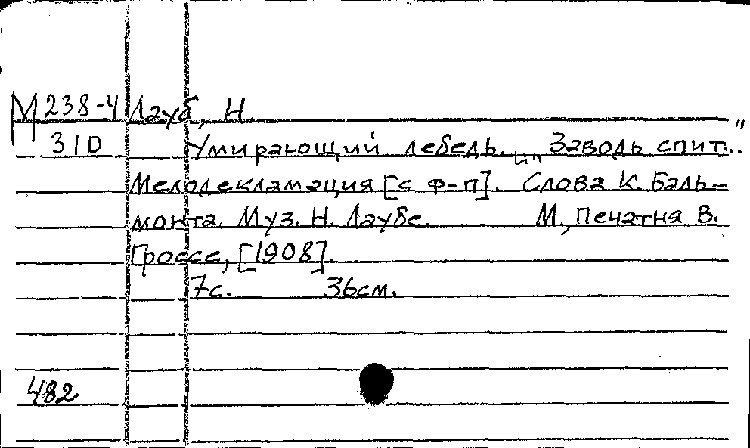 М 238-4 Лауб, Н.
310 Умирающий лебедь. „Заводь спит...”
Мелодекламация [с ф-п]. Слова К. Баль-
монта. Муз. Н. Лаубе. М, печатня В.
Гроссе, [1908].
7с. 36см.
482